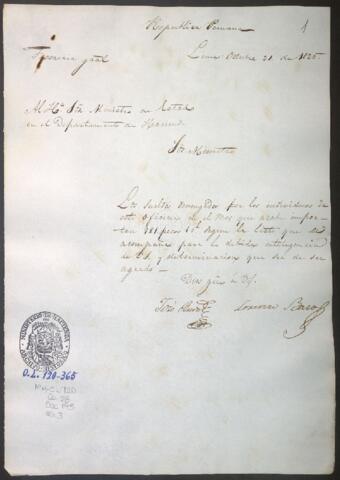 Republica Peruana
1
Tesoreria gral
Lima Octubre 31 de 1825.
Al Hᵉ Sōr Ministro de Estado
en el Departamento de Hacienda
Sōr Ministro
Los sueldos devengados por los individuos de
esta oficina en el mes que acaba impor-
tan pesos segun la lista que se
acompaña para la debida inteligencia
de V.S. y determinacion que sea de su
agrado —
Dios gūe à V.S.
José
Lorenzo
MINISTERIO DE HACIENDA
O.L. 120-365